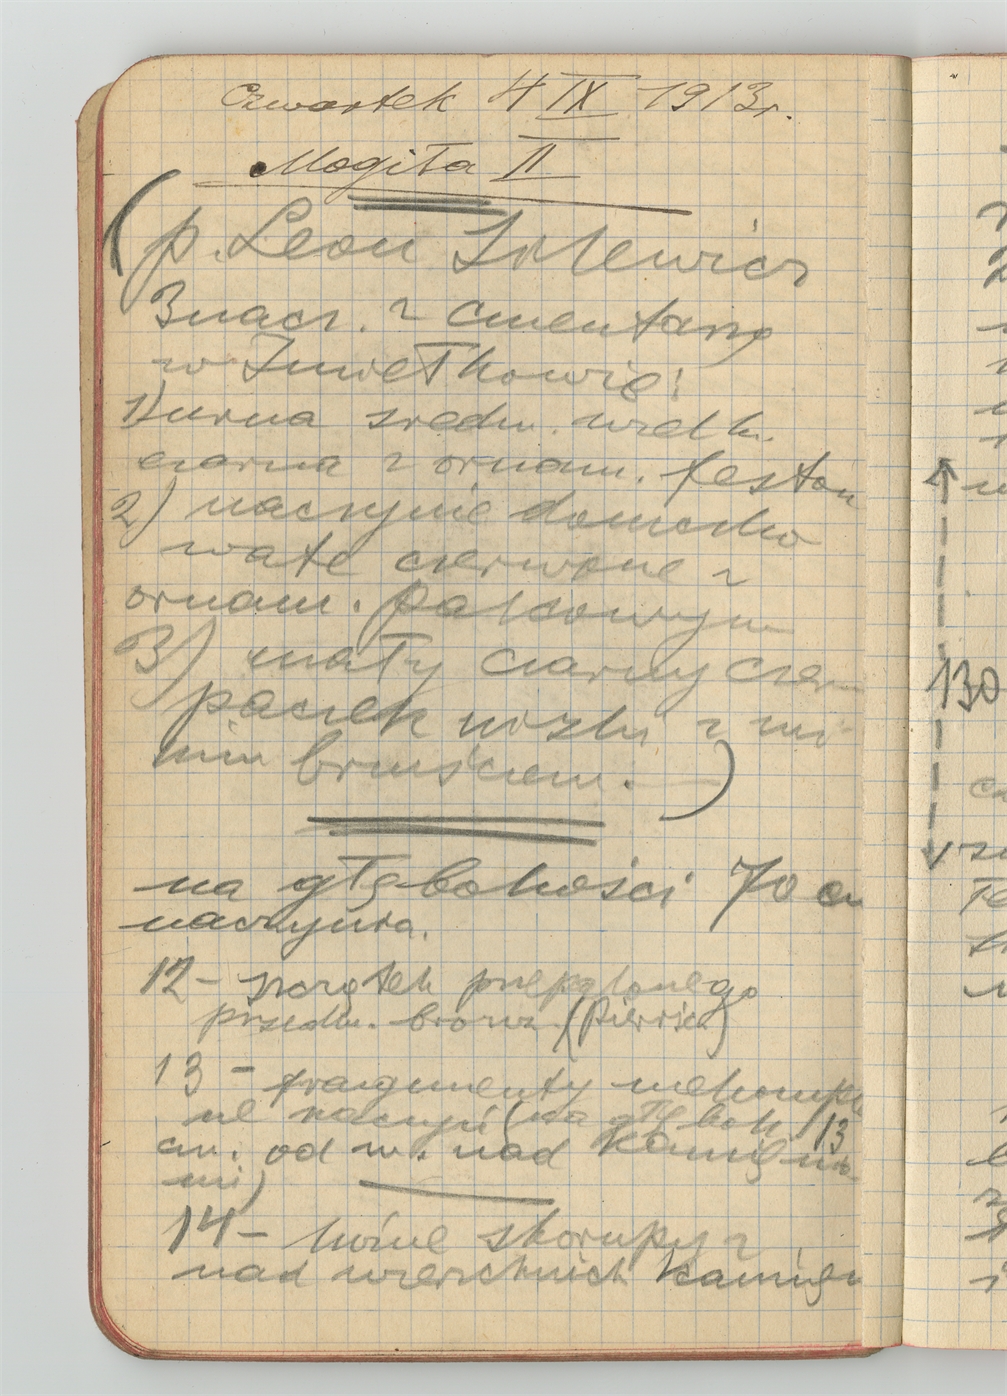 Czwartek 4 IX 1913r.
Mogiła II
(p. Leon
Znacz. z cmentarzy
w
1) urna średn. wielk.
czarna z ornam. feston
2) naczynie doniczko
wate czerwone z
ornam. palcowym
3) mały czarny czer
paczek uszk. z wi
brzuścem. )
na głębokości 70 cm
naczynia.
12 - szczątek przepalonego
przedm. bronz. (Pierśc.)
13 - fragmenty niekomple
ne naczyń (na głębok 13
cm. od w. nad kamienia
mi)
14 - różne skorupy z
nad wierzchnich kamien
130